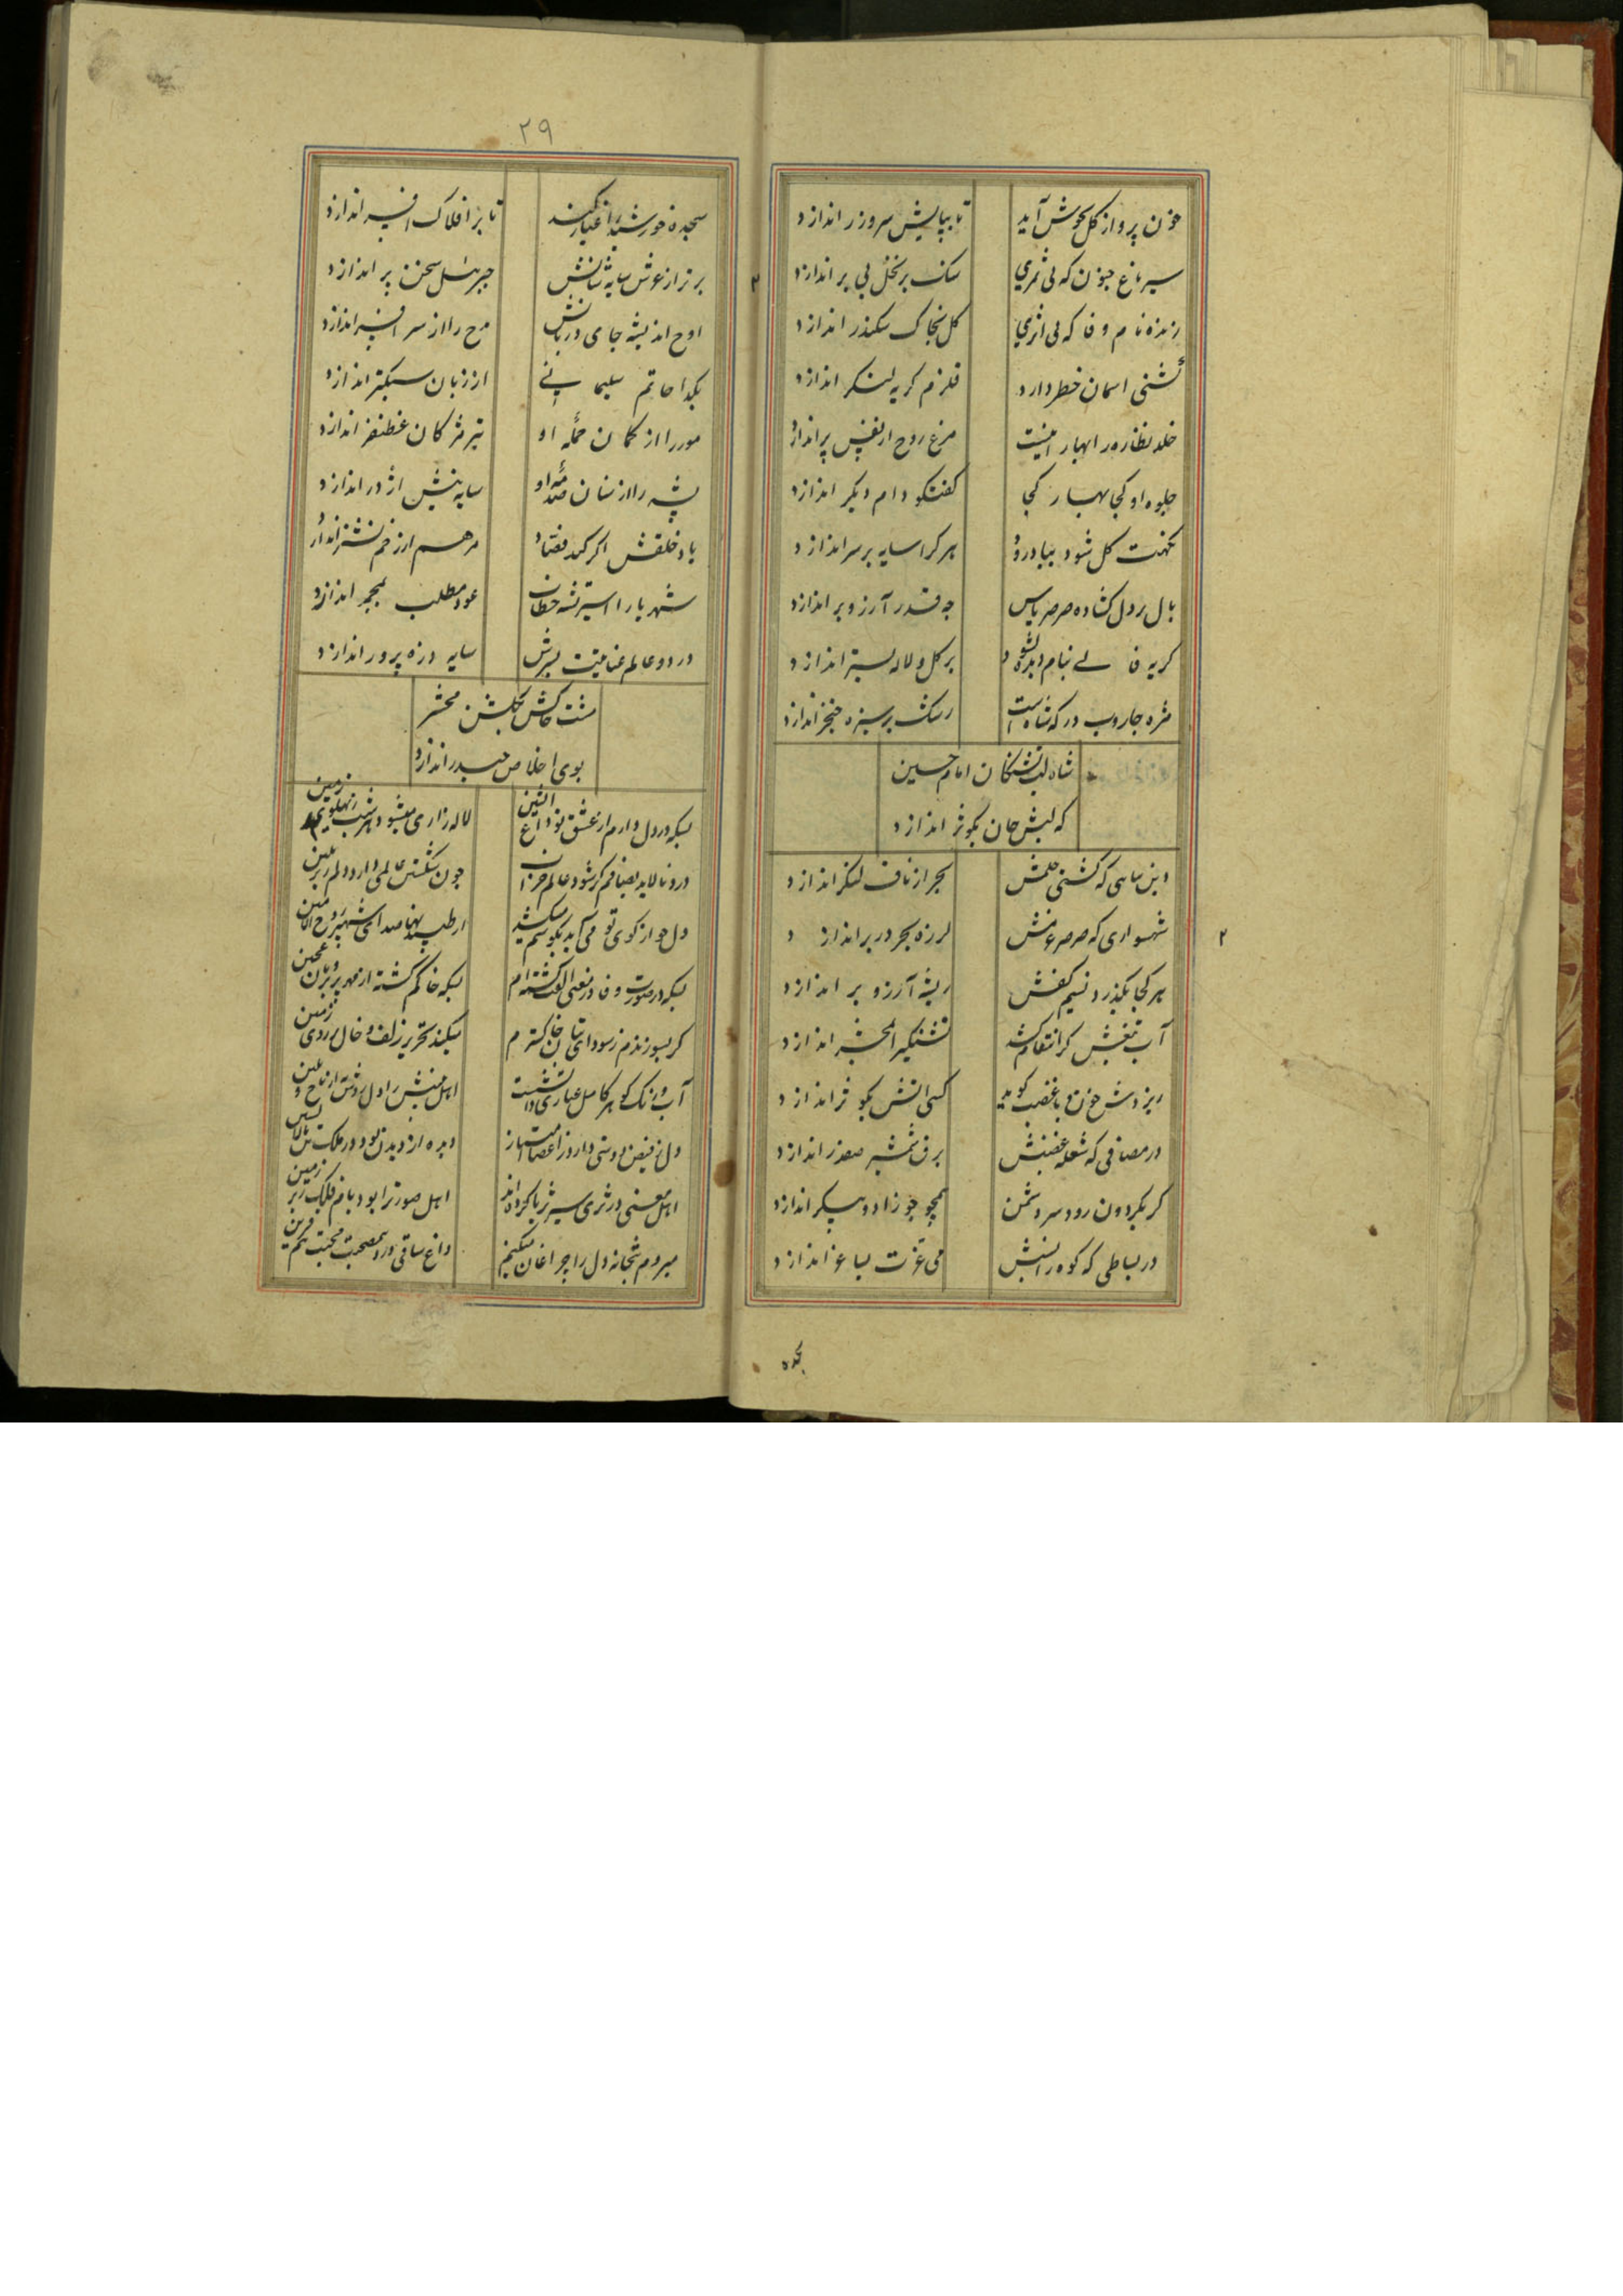 خون پرواز گل بجوش آید تا بپایش سر و زر اندازد
سیر باغ جنون که بی ثمری سنگ بر نخل بی بر اندازد
زنده نام وفا که بی اثری گل بخاک سکندر اندازد
کشتی اسمان خطر دارد قلزم کریه لنکر اندازد
خلد نظاره را بهار اینست مرغ روح از قفس پر اندازد
جلوه او کجا بهار کجا کفتکو دام دیکر اندازد
نکهت کل شود بباد رود هر کرا سایه بر سر اندازد
بال بر دل کشاده صرصر یاس چه قدر آرزو بر اندازد
کریه بر کل و لاله بستر اندازد
مژه جاروب درکه شاه است رشک بر سبزه خنجر اندازد
شاه لب تشنکان امام حسین
که لبش جان بکوثر اندازد
دین پناهی که کشتی حلمش بحر از ناف لنکر اندازد
شهسواری که صرصر عزمش لرزه بحر در بر اندازد
هر کجا بکذرد نسیم کفش ریشه آرزو بر اندازد
آب تیغش کر انتقام کشد تشنکی را بمحشر اندازد
ریزدش خون و با غضب کوید کسی اتش بکوثر اندازد
در مصافی که شعله غضبش برق شمشیر صفدر اندازد
کر بکردون رود سر دشمن همچو جوزا دو پیکر اندازد
در بساطی که کوه رانش می عزت بساغر اندازد
سجده
۲۹
سجده خورشید را غبار کند تا بر افلاک افسر اندازد
برتر از عرش سایه شانش جبرئیل سخن پر اندازد
اوج اندیشه جای دربانش مرح را از سر افسر اندازد
بکدا خاتم سلیمانی از زبان سبکتر اندازد
مور را از کمان حمله او تیر مژکان غضنفر اندازد
پشه را از سنان صدمه او سایه نیش اژدر اندازد
یاد خلقش اکر کند فصاد مرهم از زخم نشتر اندازد
شهریارا اسیر تشنه خطان عود مطلب بمجمر اندازد
در دو عالم عنایتت بسرش سایه ذره پرور اندازد
مشت خاکش بکلشن محشر
بوی اخلاص حیدر اندازد
بسکه در دل دارم از عشق تو داغ اتشین لاله زاری میشود هر شب ز پهلویم زمین
چون شکستن عالمی دارد دلم زیر نکین
دل چو از کوی تو می آید بکوشم میکشد از طپیدنها صدای شهپر روح الامین
بسکه در صورت وفا در معنی الفت کشته ام بسکه خاکم کشته از مهر پریرویان عجین
کر بسوزندم ز سودای بتان خاکسترم میکند تحریر زلف و خال بر روی زمین
آب و رنک کوهر کامل عیاری داشت اهل بینش را دل روشن از تاج و نکین
دل ز فیض دوستی دارد ز اعضا امتیاز دیده از دیدن بود در ملک تن بالانشین
اهل معنی در ثری سیر ثریا کرده اند اهل صورت را بود بام فلک زیر زمین
میروم بتخانه دل را چراغان میکنم داغ ساقی درد هم صحبت محبت هم قرین